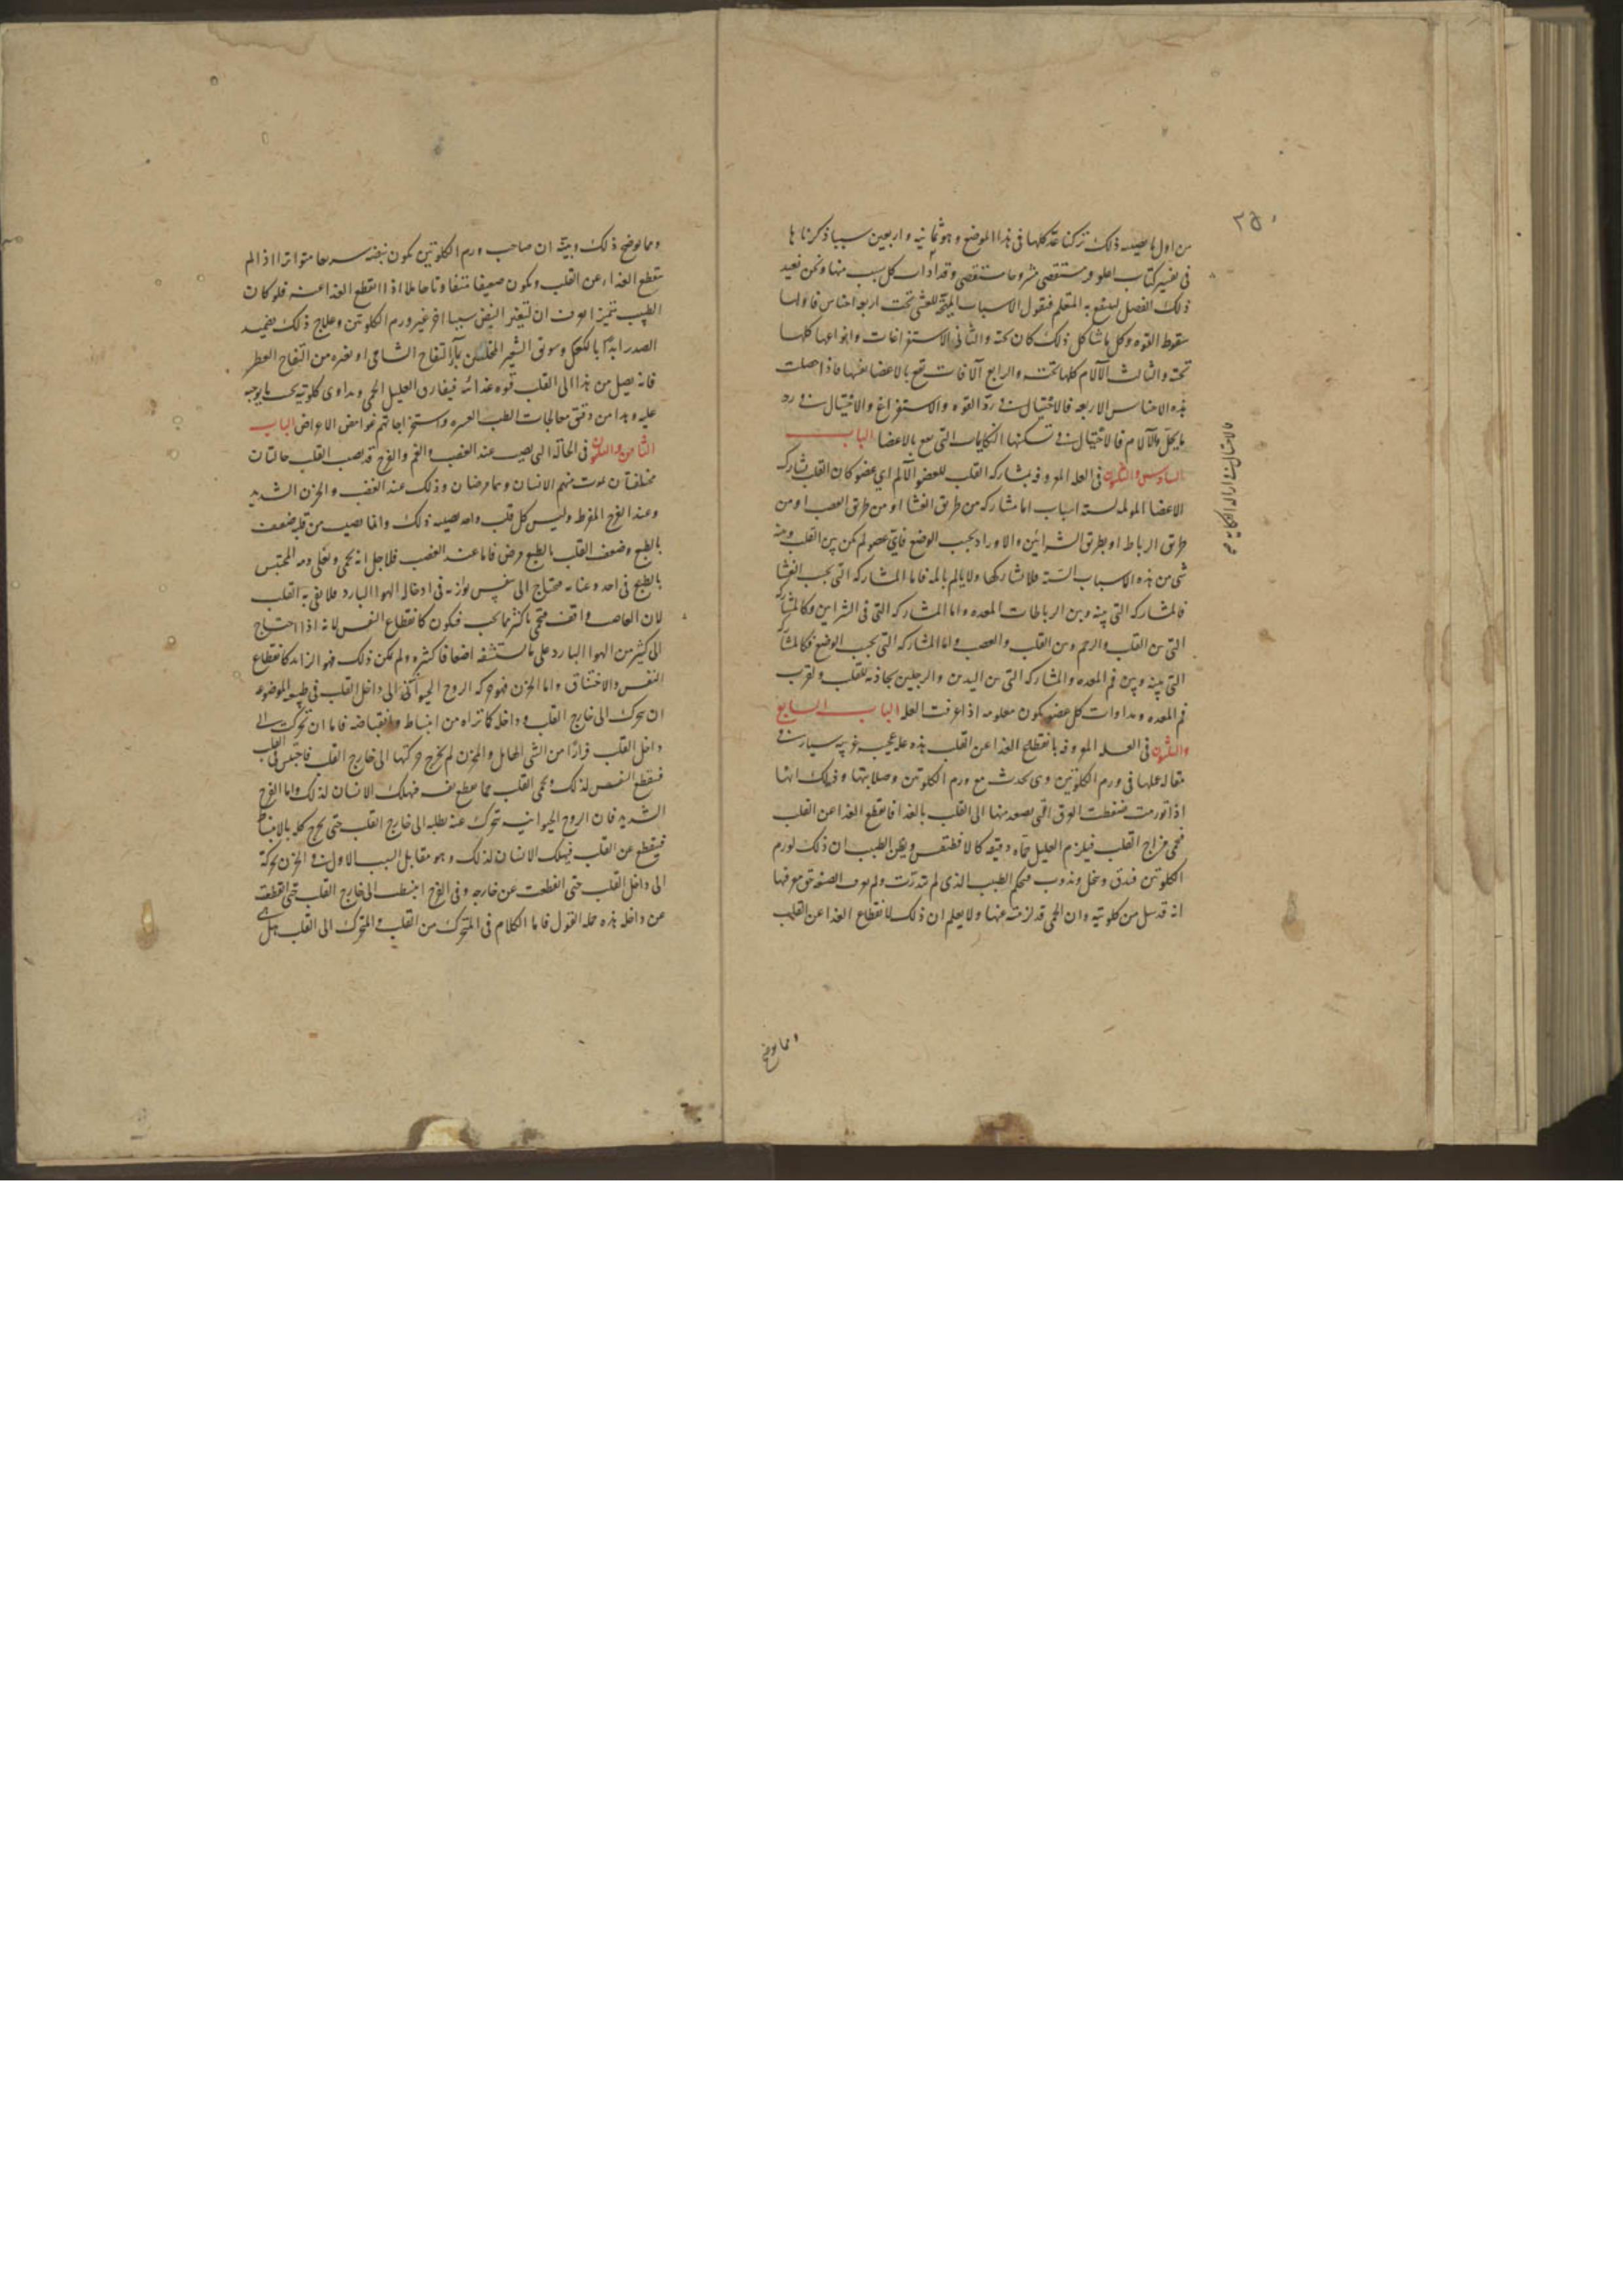 ٢٥٠
من اول ما يصيبه ذلك تركنا عد كلها فى هذا الموضع وهو ثمانيه واربعين سببا ذكرناها
فى تفسير كتاب اغلوقن مستقصى مشروحا مستقصى ومداواة كل سبب منها ونحن نعيد
ذلك الفصل لينتفع به المتعلم فنقول الاسباب المهيجة للغشى تحت اربعة اجناس فاولها
سقوط القوه وكل ما شاكل ذلك كان تحته والثانى الاستفراغات وانواعها كلها
تحته والثالث الآلام كلها تحته والرابع آلافات تقع بالاعضا نفسها فاذا حصلت
هذه الاجناس الاربعه فالاحتيال فى ردّ القوه والاستفراغ والاحتيال فى رد
ما يحلّ والآلام فالاحتيال فى تسكينها النكايات التى تقع بالاعضا الباب
السادس والعشرون فى العله المعروفه بمشاركه القلب للعضو الآلم اى عضو كان القلب يشارك
الاعضا المولمه لسته اسباب اما مشاركه من طريق الغشا او من طريق العصب او من
طريق الرباط او بطريق الشرايين والاوراد بحسب الوضع فاىّ عضو لم يكن بين القلب وبينه
شى من هذه الاسباب الستة فلا يشاركها ولا يالم بالمه فاما المشاركه التى بحسب الغشا
فالمشاركه التى بينه وبين الرباطات المعده واما المشاركه التى فى الشرايين فكالمشاركه
التى بين القلب والرحم وبين القلب والعصب واما المشاركه التى بحسب الوضع فكالمشاركه
التى بينه وبين فم المعده والمشاركه التى بين اليدين والرجلين بمحاذته للقلب ولقرب
فم المعده ومداوات كل عضو يكون معلومه اذا عرفت العله الباب السابع
والعشرون فى العله المعروفه بانقطاع الغذا عن القلب هذه علة عجيبه غريبه سيارت فى
مقاله عملها فى ورم الكلوتين وهى تحدث مع ورم الكلوتين وصلابتها وذلك انها
اذا تورمت ضغطت العرق الذى يصعد منها الى القلب بالغذا فانقطع الغذا عن القلب
فحمى مزاج القلب فيلزم العليل حماه دقيقه كالا فطيقس ويظن الطبيب ان ذلك لورم
الكلوتين فيدق وينحل ويذوب فيحكم الطبيب الذى لم يتدرّب ولم يعرف الصنعه حق معرفتها
انه قد سل من كلوتيه وان الحمى قد لزمته عنها ولا يعلم ان ذلك لانقطاع الغذا عن القلب
ومما يوضح
ومما يوضح ذلك ويبيّنه ان صاحب ورم الكلوتين يكون نبضه سريعا متواترا اذا لم
ينقطع الغذاء عن القلب ويكون ضعيفا متفاوتا خاملا اذا انقطع الغذا عنه فلو كان
الطبيب متميزا لعرف ان لتغير النبض سببا اخر غير ورم الكلوتين وعلاج ذلك تضميد
الصدر ابدًا بالكعك وسويق الشعير المخلّس بماء التفاح الشامى او بغيره من التفاح العطر
فانه يصل من هذا الى القلب قوه غذائه فيفارق العليل الحمى ويداوى كلوتيه بحسب ما يوجبه
عليه وهذا من دقيق معالجات الطب العسره واستخراجاتهم غوامض الاعراض الباب
الثامن والعشرون فى الحالة التى تصيب عند الغضب والغم والفرح قد يصيب القلب حالتان
مختلفتان يموت منهم الانسان وهما مرضان وذلك عند الغضب والحزن الشديد
وعند الفرح المفرط وليس كل قلب واحد يصيبه ذلك وانما يصيب من قلبه ضعيف
بالطبع وضعف القلب بالطبع مرض فاما عند الغضب فلاجل انه يحمى ويغلى دمه المحتبس
بالطبع فى احد وعنا به فيحتاج الى تنفس يوازيه فى ادخال الهوا البارد فلا يفى به القلب
لان الغاصب واقف فيحمى باكثر مما يجب فيكون كانقطاع النفس لانه اذا احتاج
الى كثير من الهوا البارد على ما يستنشقه اضعافا كثيره ولم يكن ذلك فهو الزايد كانقطاع
النفس والاختناق واما الحزن فهو حركه الروح الحيوانى الى داخل القلب فى طبيعه الموضوعه
ان يتحرك الى خارج القلب وداخله كما نراه من انبساطه وانقباضه فاما ان تحركت الى
داخل القلب فرارًا من الشى الهايل والمحزن لم يخرج حركتها الى خارج القلب فاحتبس فى القلب
فينقطع النفس لذلك وحمى القلب مما ينقطع نفسه فيهلك الانسان لذلك واما الفرح
الشديد فان الروح الحيوانيه تتحرك عند طلبه الى خارج القلب حتى يخرج كله بالانبساط
فينقطع عن القلب فيهلك الانسان لذلك وهو مقابل السبب الاول فى الحزن تحركة
الى داخل القلب حتى انقطعت عن خارجه وفى الفرح انبسط الى خارج القلب حتى انقطعت
عن داخله هذه جمله القول فاما الكلام فى المتحرك من القلب والمتحرك الى القلب هل هى